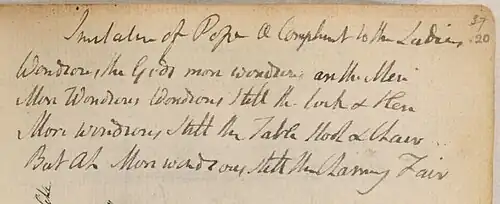 Imitation of Pope A Compliment to the Ladies
39
20
Wondrous the Gods more wondrous are the Men
More Wondrous Wondrous still the Cock & Hen
More wondrous still the Table Stool & Chair
But Ah More wondrous still the Charming Fair